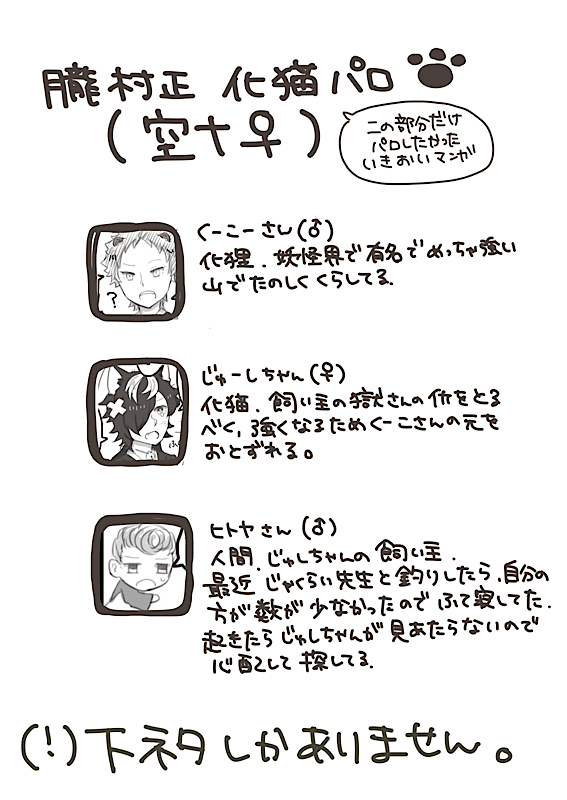 朧村正 化猫パロ
(空十♀)
この部分だけ
パロしたかった
いきおいマンガ
くーこーさん(♂)
化狸. 妖怪界で有名でめっちゃ強い
山でたのしくくらしてる.
?
じゅーしちゃん(♀)
化猫. 飼い主の獄さんの仇をとる
べく, 強くなるためくーこさんの元を
おとずれる。
ヒトヤさん(♂)
人間. じゅしちゃんの飼い主.
最近じゃくらい先生と釣りしたら,自分の
方が数が少なかったのでふて寝してた.
起きたらじゅしちゃんが見あたらないので
心配して探してる.
(!)下ネタしかありません。